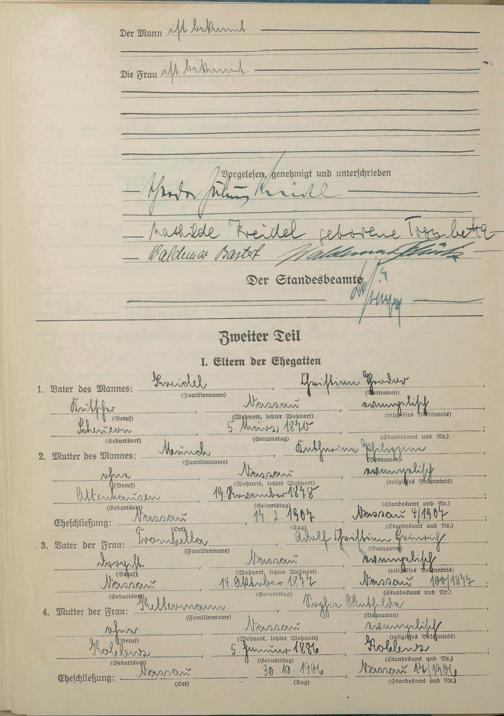 Der Mann ist bekannt
Die Frau ist bekannt
Vorgelesen, genehmigt und unterschrieben
Theodor Julius Kreidel
Mathilde Kreidel geborene Trombetta
Waldemar
Der Standesbeamte
Zweiter Teil
I. Eltern der Ehegatten
1. Vater des Mannes: Kreidel Christian Theodor
(Familienname) (Vornamen)
Nassau evangelisch
(Beruf) (Wohnort, letzter Wohnort) (religiöses Bekenntnis)
5 März 1870
(Geburtsort) (Geburtstag) (Standesamt und Nr.)
2. Mutter des Mannes: Katharina Philippine
(Familienname) (Vornamen)
ohne Nassau evangelisch
(Beruf) (Wohnort, letzter Wohnort) (religiöses Bekenntnis)
Attenhausen 19 November 1878
(Geburtsort) (Geburtstag) (Standesamt und Nr.)
Eheschließung: Nassau 17.2.1907 Nassau 4/1907
(Ort) (Tag) (Standesamt und Nr.)
3. Vater der Frau: Trombetta Adolf Christian Heinrich
(Familienname) (Vornamen)
Nassau evangelisch
(Beruf) (Wohnort, letzter Wohnort) (religiöses Bekenntnis)
Nassau 14. Oktober 1877 Nassau 100/1877
(Geburtsort) (Geburtstag) (Standesamt und Nr.)
4. Mutter der Frau: Kellermann Sophie Mathilde
(Familienname) (Vornamen)
ohne Nassau evangelisch
(Beruf) (Wohnort, letzter Wohnort) (religiöses Bekenntnis)
Koblenz 5 Januar 1886 Koblenz
(Geburtsort) (Geburtstag) (Standesamt und Nr.)
Eheschließung: Nassau 30.10.1906 Nassau 17/1906
(Ort) (Tag) (Standesamt und Nr.)